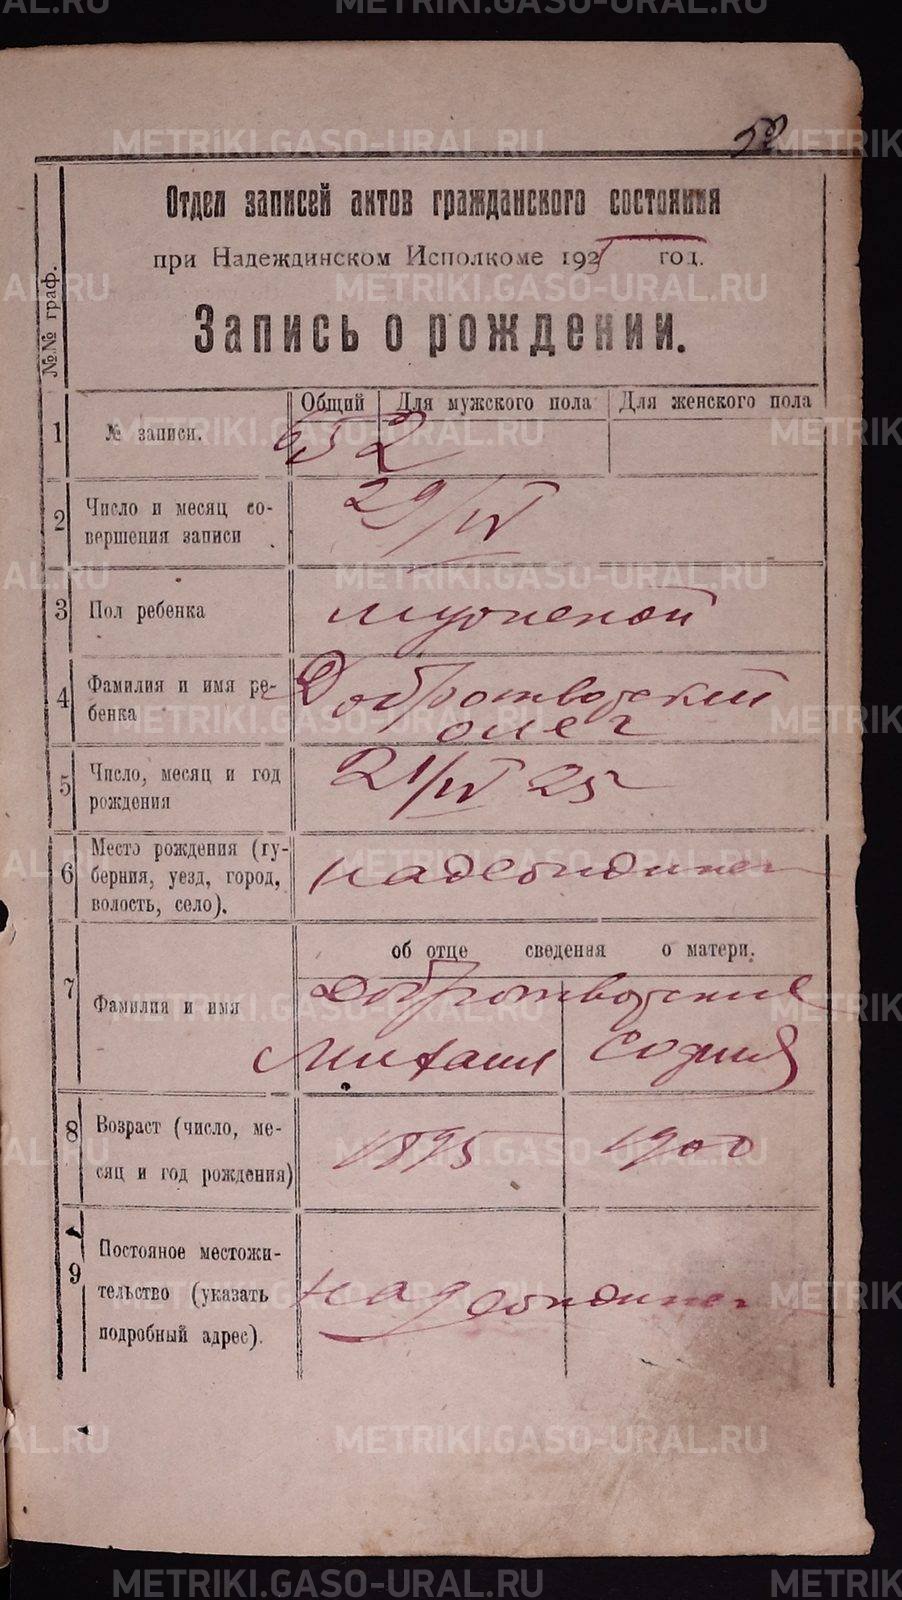 58
Отдел записей актов гражданского состояния
при Надеждинском Исполкоме 1925 год.
Запись о рождении.
№№ граф.
Общий Для мужского пола Для женского пола
1 № записи. 52
2 Число и месяц со-
вершения записи
29/IV
3 Пол ребенка мужской
4 Фамилия и имя ре-
бенка
Добротворский
Олег
5 Число, месяц и год
рождения
21/IV 25
6 Место рождения (гу-
берния, уезд, город,
волость, село).
Надеждинск
об отце сведения о матери.
7 Фамилия и имя
Добротворские
Михаил София
8 Возраст (число, ме-
сяц и год рождения)
1895 1900
9 Постояное местожи-
тельство (указать
подробный адрес).
Надеждинск
METRIKI.GASO-URAL.RU